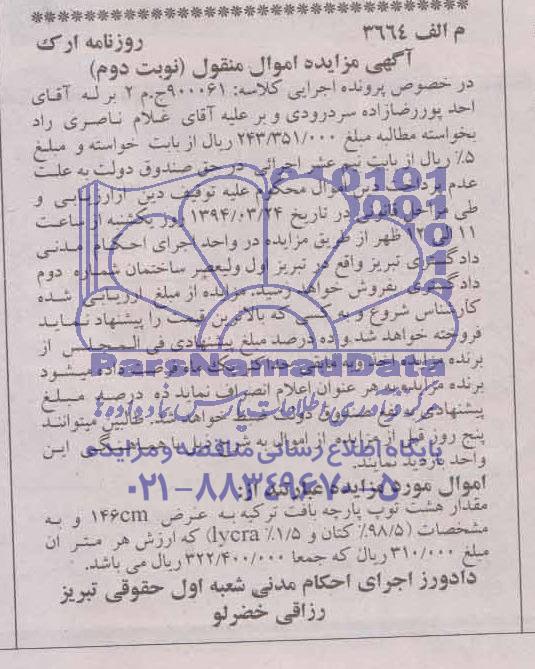 م الف ٣٦٦٤
روزنامه ارک
آگهی مزایده اموال منقول (نوبت دوم)
در خصوص پرونده اجرایی کلاسه: ۹۰۰۰۶۱ج.م ۲ بر له آقای
احد پوررضازاده سردرودی و بر علیه آقای غلام ناصری راد
بخواسته مطالبه مبلغ ۲۴۳/۳۵۱/۰۰۰ ریال از بابت خواسته و مبلغ
۵٪ ریال از بابت نیم عشر اجرائی در حق صندوق دولت به علت
عدم پرداخت دین اموال محکوم علیه توقیف دین ارارزیابی و
طی مراحل قانونی در تاریخ ۱۳۹۴/۰۳/۲۴ روز یکشنبه از ساعت
۱۱ الی ۱۲ ظهر از طریق مزایده در واحد اجرای احکام مدنی
دادگستری تبریز واقع در تبریز اول ولیعصر ساختمان شماره دوم
دادگستری بفروش خواهد رسید. مزایده از مبلغ ارزیابی شده
کارشناس شروع و به کسی که بالاترین قیمت را پیشنهاد نماید
فروخته خواهد شد و ده درصد مبلغ پیشنهادی فی المجلس از
برنده مزایده اخذ و به مابقی حداکثر یک ماه فرصت داده میشود
برنده مزایده به هر عنوان اعلام انصراف نماید ده درصد مبلغ
پیشنهادی به نفع صندوق دولت ضبط خواهد شد. طالبین میتوانند
پنج روز قبل از مزایده از اموال به شرح ذیل با هماهنگی این
واحد بازدید نمایند.
اموال مورد مزایده عبارتند از:
مقدار هشت توپ پارچه بافت ترکیه به عرض ۱۴۶cm و به
مشخصات (۹۸/۵٪ کتان و ۱/۵٪ lycra) که ارزش هر متر آن
مبلغ ۳۱۰/۰۰۰ ریال که جمعا ۳۲۲/۴۰۰/۰۰۰ ریال می باشد.
دادورز اجرای احکام مدنی شعبه اول حقوقی تبریز
رزاقی خضرلو
ParsNamadData
مرکز فرآوری اطلاعات پارس نماد داده ها
پایگاه اطلاع رسانی مناقصه و مزایده
۰۲۱-۸۸۳۴۹۶۷۰-۵